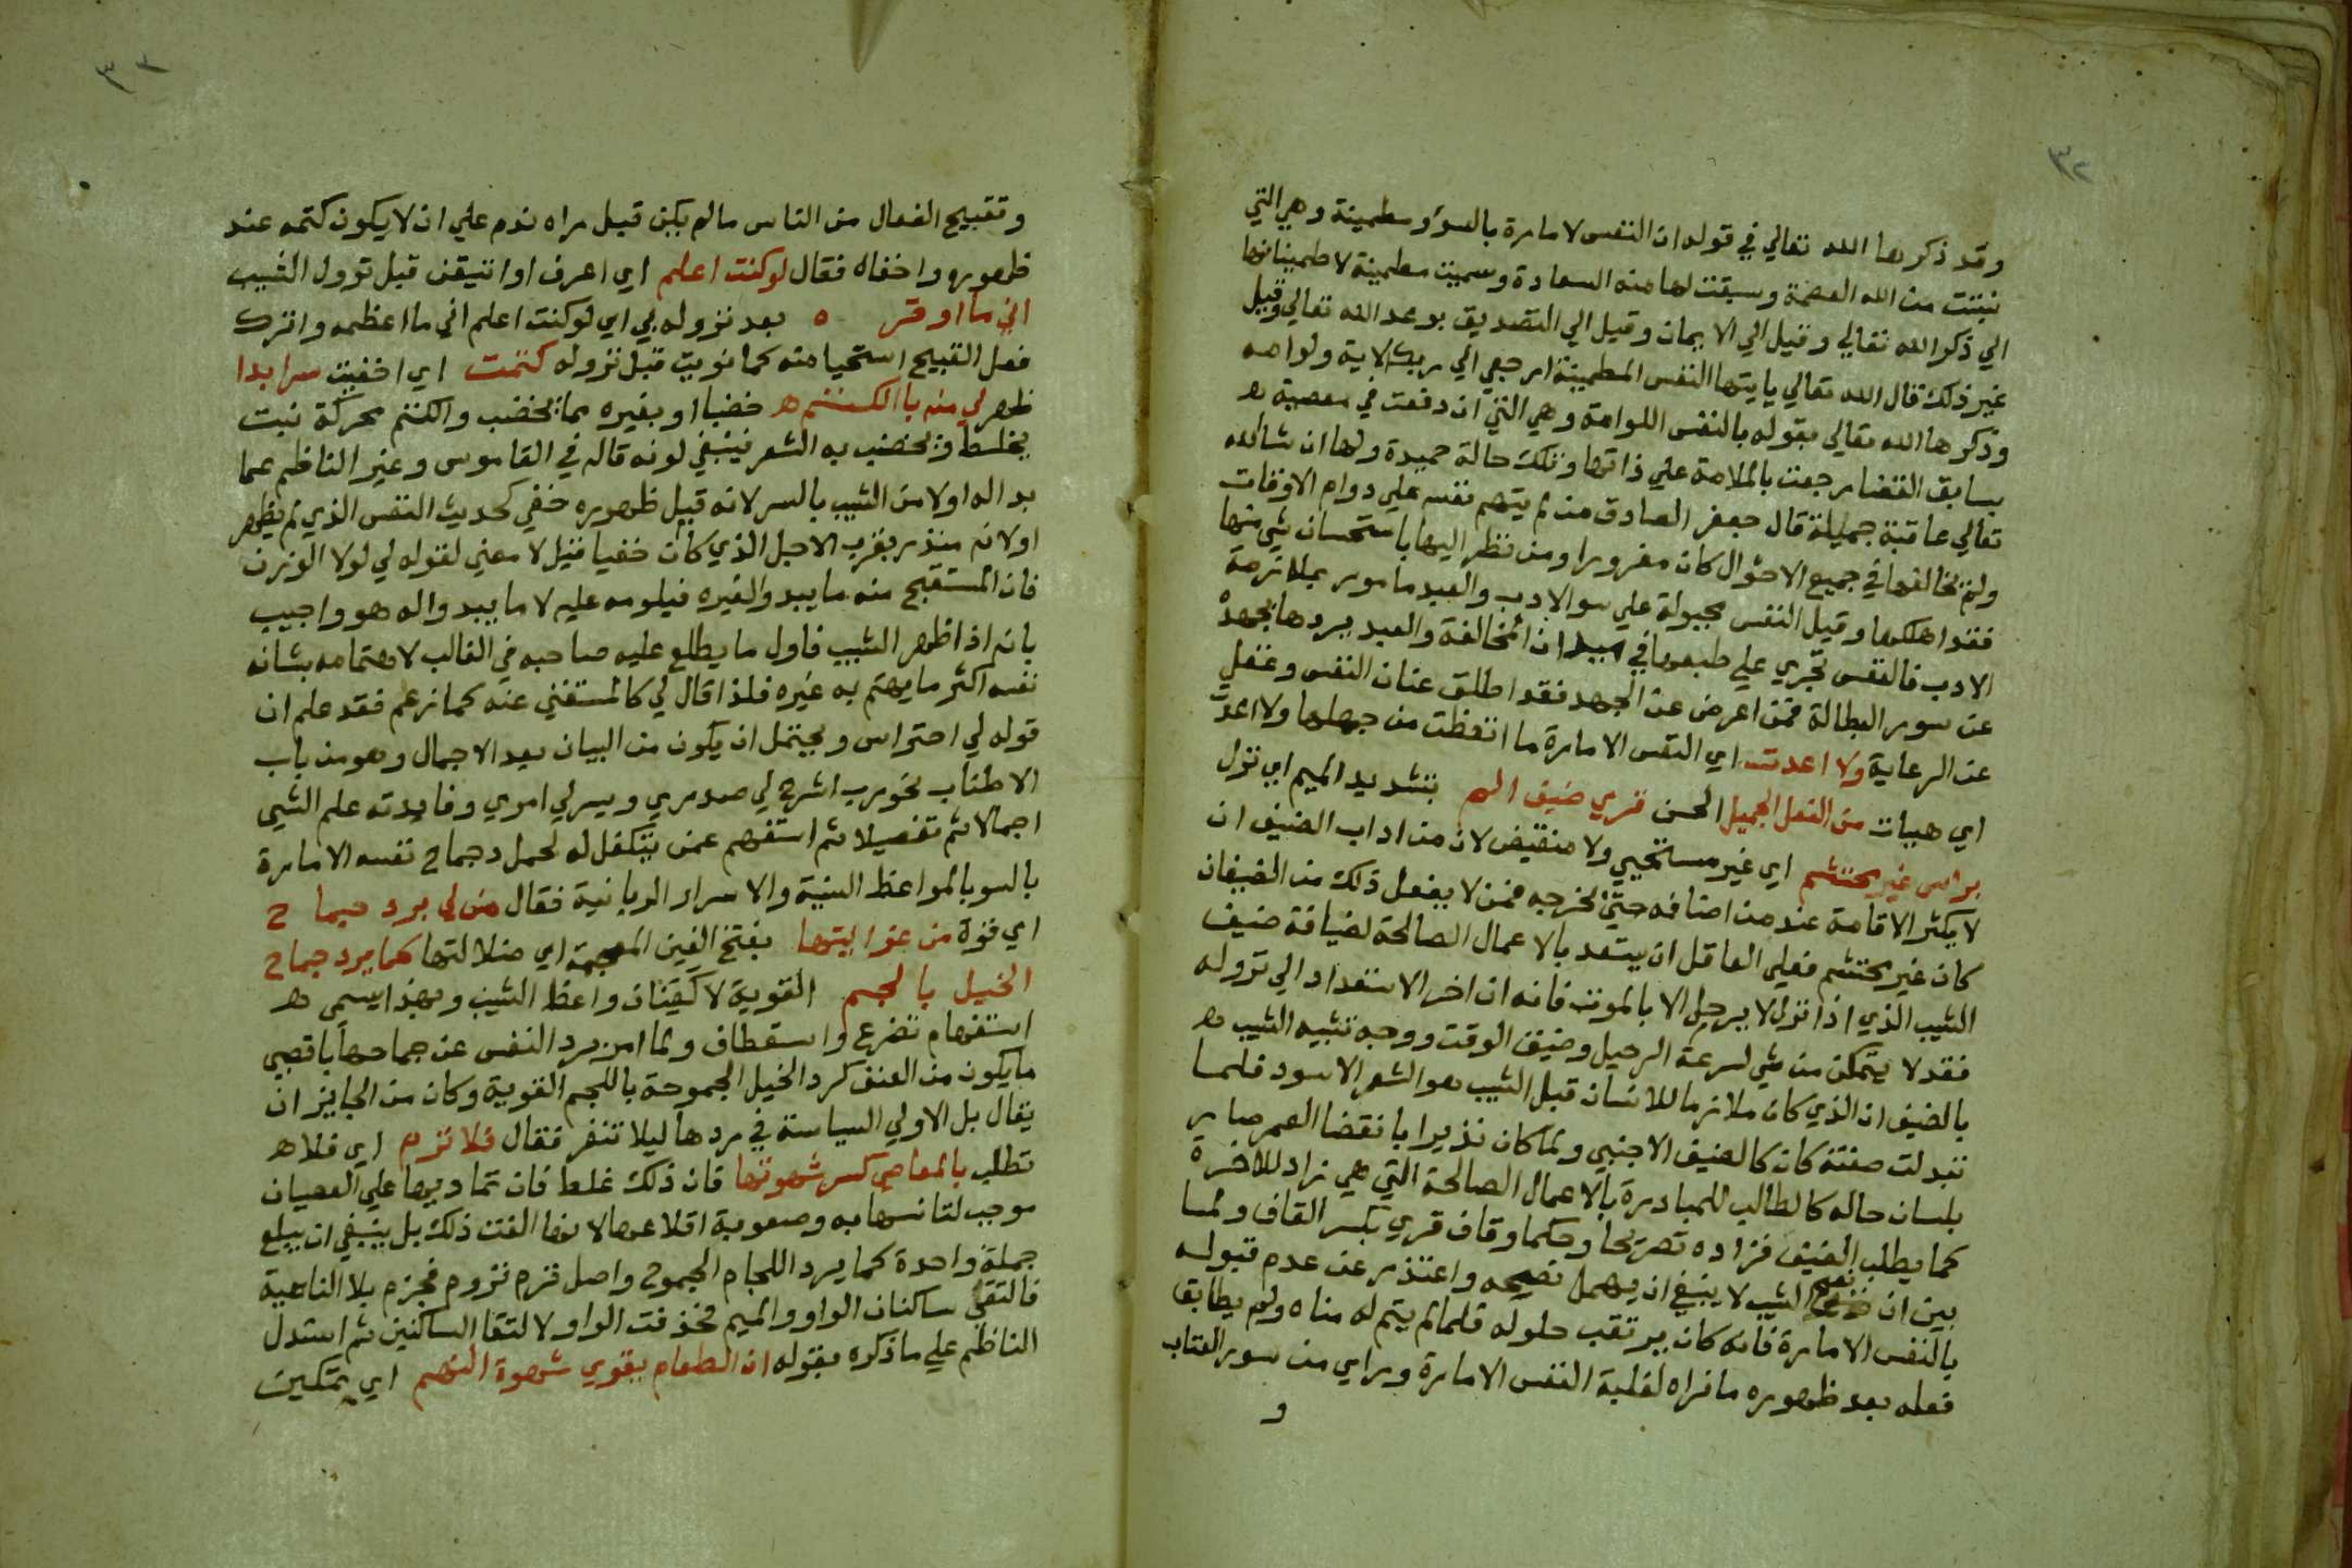 ٣٢
وقد ذكرها الله تعالي في قوله ان النفس لامارة بالسؤ ومطمينة وهي التي
نبتت من الله العصمة وسبقت لها منه السعادة وسميت مطمينة لاطمينانها
الي ذكر الله تعالي وقيل الي الايمان وقيل الي التصديق بوعد الله تعالي وقيل
غير ذلك قال الله تعالي يايتها النفس المطمينة ارجعي الي ربك الاية ولوامه
وذكرها الله تعالي بقوله بالنفس اللوامة وهي التي ان دفعت في معصية ه
بسابق القضا رجعت بالملامة علي ذاتها وتلك حالة حميدة ولها ان شا الله
تعالي عاقبة جميلة قال جعفر الصادق من لم يتهم نفسه علي دوام الاوقات
ولم يخالفها في جميع الاحوال كان مغرورا ومن نظر اليها باستحسان شي منها
فقد اهلكها وقيل النفس مجبولة علي سو الادب والعبد مامور بملازمة
الادب فالنفس تجري علي طبعها في ميدان المخالفة والعبد يردها بجهده
عن سور البطالة فمن اعرض عن الجهد فقد اطلق عنان النفس وغفل
عن الرعاية ولا اعدت اي النفس الامارة ما اتعظت من جهلها ولا اعدت
اي هيات من الفعل الجميل الحسن قري ضيف الم بتشديد الميم اي نزل
براس غير محتشم اي غير مستحيي ولا منقبض لان من اداب الضيف ان
لا يكثر الاقامة عند من اضافه حتي يخرجه فمن لا يفعل ذلك من الضيفان
كان غير محتشم فعلي العاقل ان يستعد بالاعمال الصالحة لضيافة ضيف
الشيب الذي اذا نزل لا يرحل الا بالموت فانه ان اخر الاستعداد الي نزوله
فقد لا يتمكن من شي لسرعة الرحيل وضيق الوقت ووجه تشبيه الشيب ه
بالضيف ان الذي كان ملازما للانسان قبل الشيب هو الشعر الاسود فلما
تبدلت صفته كان كالضيف الاجنبي ولما كان نذيرا بانقضا العمر صار
بلسان حاله كالطالب للمبادرة بالاعمال الصالحة التي هي زاد للاخرة
كما يطلب الضيف فزاده تصريحا وحكما وقاف قري بكسر القاف ولما
بين ان نصح الشيب لا ينبغي ان يهمل نصيحه واعتذر عن عدم قبوله
بالنفس الامارة فانه كان يرتقب حلوله فلما لم يتم له مناه ولم يطابق
فعله بعد ظهوره ما نراه لغلبة النفس الامارة وبراي من سور العتاب
و
٣٣
وتقبيح الفعال من الناس ما لم يكن قبل مراه ندم علي ان لا يكون كتمه عند
ظهوره واخفاه فقال لو كنت اعلم اي اعرف او اتيقن قبل نزول الشيب
اني ما اوقره بعد نزوله بي اي لو كنت اعلم اني ما اعظمه واترك
فعل القبيح استحيا منه كما نويت قبل نزوله كتمت اي اخفيت سرا بدا
ظهر لي منه بالكتم ه خضبا او بغيره مما يخضب والكتم محركة نبت
يخلط ويخضب به الشعر فينبغي لونه قاله في القاموس وعير الناظم عما
بدا له اولا من الشيب بالسر لانه قبل ظهوره خفي كحديث النفس الذي لم يظهر
اولانه منذر بقرب الاجل الذي كان خفيا قيل لا معني لقوله لي لولا الوزن
فان المستقبح منه ما يبدو الغيره فيلومه عليه لا ما يبدو اله هو واجيب
بانه اذا ظهر الشيب فاول ما يطلع عليه صاحبه في الغالب لاهتمامه بشانه
نفسه اكثر ما يهتم به غيره فلذا قال لي كالمستغني عنه كما زعم فقد علم ان
قوله لي احتراس ويحتمل ان يكون من البيان بعد الاجمال وهو من باب
الاطناب نحو رب اشرح لي صدري ويسر لي امري وفايدته علم الشي
اجمالا ثم تفصيلا ثم استفهم عمن يتكفل له لحمل وجماح نفسه الامارة
بالسو بالمواعظ السنية والاسرار الربانية فقال من لي برد جماح
اي قوة من غوايتها بفتح الغين المعجمة اي ضلالتها كما يرد جماح
الخيل باللجم القوية لا كيتان واعظ الشيب وبهذا يسمي ه
استفهام تضرع واستعطاف ولما امن رد النفس عن جماحها باقصي
ما يكون من العنف كرد الخيل الجموحة باللجم القوية وكان من الجايز ان
يقال بل الاولي السياسة في ردها ليلا تنفر فقال فلا ترم اي فلا ه
تطلب بالمعاصي كسر شهوتها فان ذلك غلط فان تماديها علي العصيان
موجب لتانسها به وصعوبة اقلاعها لانها الفت ذلك بل ينبغي ان يبلع
جملة واحدة كما يرد اللجام الجموح واصل ترم تروم فجزم بلا الناهية
فالتقي ساكنان الواو والميم فحذفت الواو لالتقا الساكنين ثم استدل
الناظم علي ما ذكره بقوله ان الطعام يقوي شهوة النهم اي تمكين